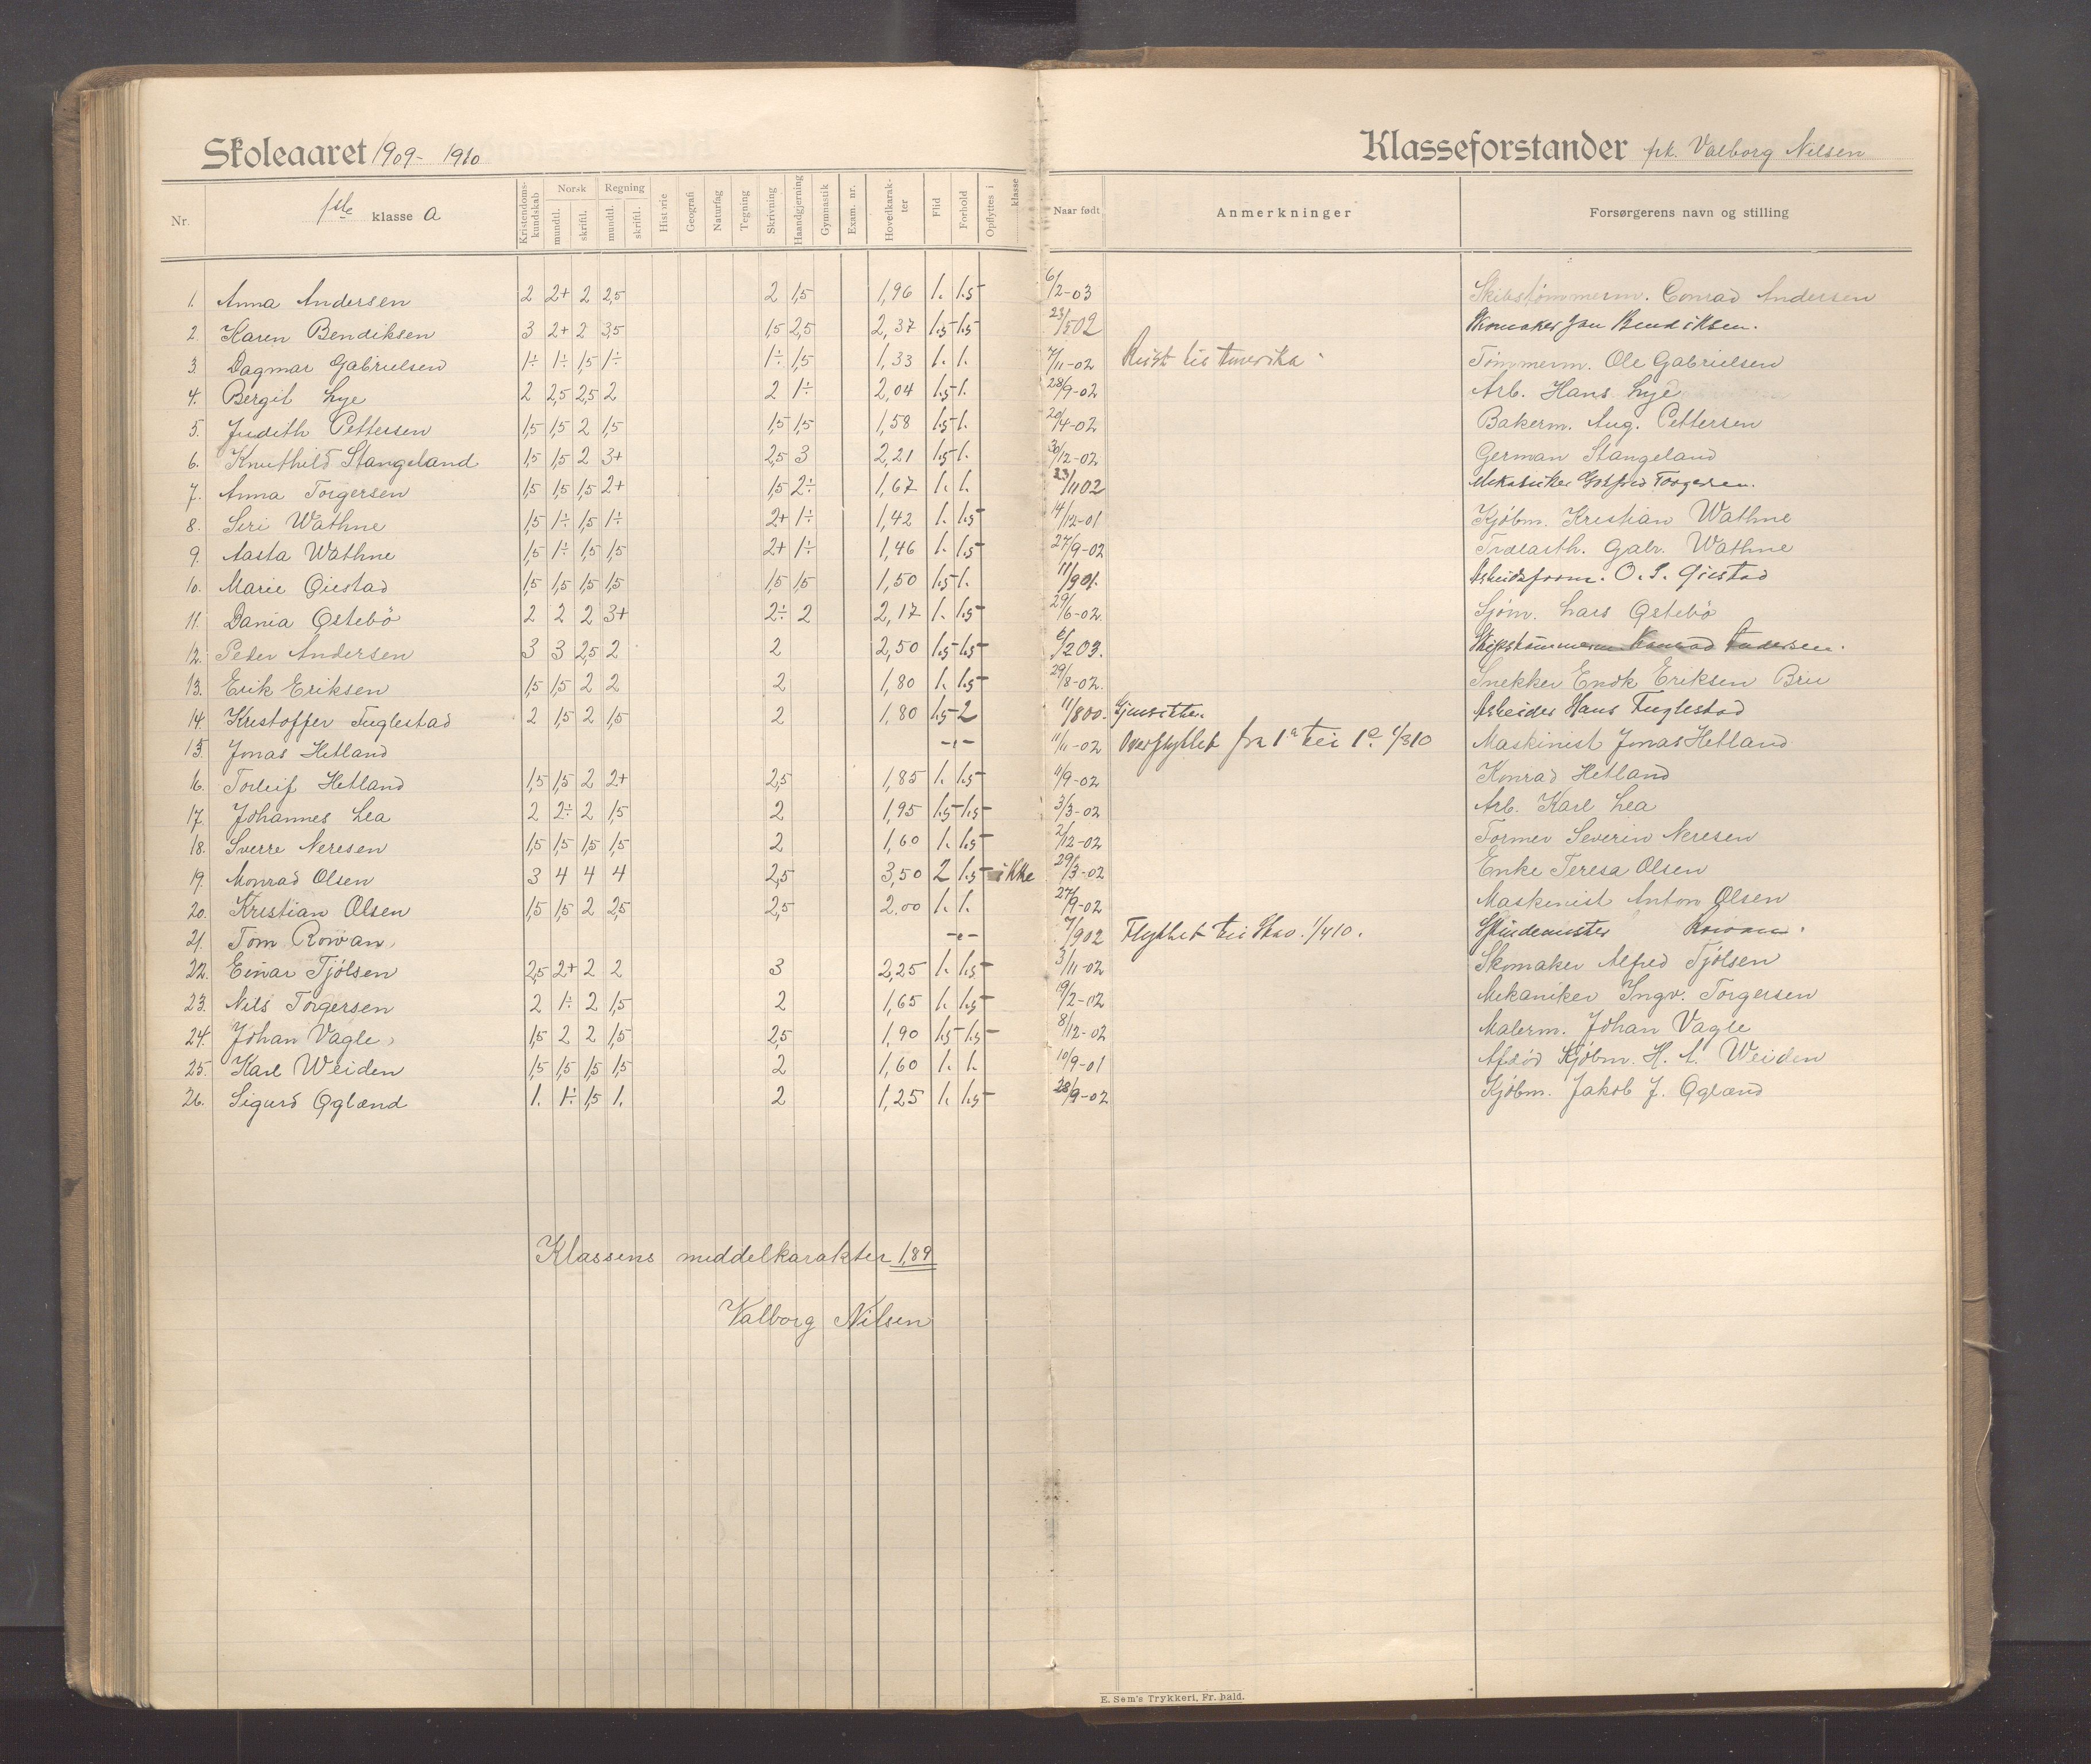 Skoleaaret 1909- 1910
Klasseforstander frk. Valborg Nilsen
Nr. 1ste klasse A Kristendomskundskab Norsk mundtl. skriftl. Regning mundtl. skriftl. Historie Geografi Naturfag Tegning Skrivning Haandgjerning Gymnastik Exam. nr. Hovedkarakter Flid Forhold Opflyttes i klasse Naar født Anmerkninger Forsørgerens navn og stilling
1. Anna Andersen 2 2+ 2 2,5 2 1,5 1,96 1. 1.5 6/2-03 Skibstømmerm. Conrad Andersen
2. Karen Bendiksen 3 2+ 2 3,5 1,5 2,5 2,37 1.5 1.5 23/5 02 Skomaker Jan Bendiksen.
3 Dagmar Gabrielsen 1÷ 1÷ 1,5 1÷ 1÷ 1,5 1,33 1. 1. 7/11-02 Reist til Amerika Tømmerm. Ole Gabrielsen
4. Bergit Lye 2 2,5 2,5 2 2 1÷ 2,04 1.5 1. 28/9-02 Arb. Hans Lye
5. Judith Pettersen 1,5 1,5 2 1,5 1,5 1,5 1,58 1.5 1. 20/4-02 Bakerm. Aug. Pettersen
6. Knuthild Stangeland 1,5 1,5 2 3+ 2,5 3 2,21 1.5 1. 30/12-02 German Stangeland
7. Anna Torgersen 1,5 1,5 1,5 2+ 1,5 2÷ 1,67 1. 1. 23/11 02 Mekaniker Gotfred Torgersen.
8. Siri Wathne 1,5 1÷ 1,5 1÷ 2+ 1÷ 1,42 1. 1.5 14/12-01 Kjøbm. Kristian Wathne
9. Aasta Wathne 1,5 1÷ 1,5 1,5 2+ 1÷ 1,46 1. 1.5 27/9-02 Trælasth. Gabr. Wathne
10. Marie Qiestad 1,5 1,5 1,5 1,5 1,5 1,5 1,50 1.5 1. 11/9 01. Arbeidsform. O. S. Qiestad
11. Dania Østebö 2 2 2 3+ 2÷ 2 2,17 1. 1.5 29/6-02. Sjöm. Lars Østebö
12. Peder Andersen 3 3 2,5 2 2 2,50 1.5 1.5 6/2 03. Skipstömmerm Konrad Andersen.
13. Erik Eriksen 1,5 1,5 2 2 2 1,80 1. 1.5 29/8-02. Snekker Endk Eriksen Bru
14. Kristoffer Fuglestad 2 1,5 2 1,5 2 1,80 1.5 2 11/8 00. Gjensitter Arbeider Hans Fuglestad
15. Jonas Hetland -,- 11/11-02 Overflyttet fra 1a til 1c 1/3 10 Maskinist Jonas Hetland
16. Torleif Hetland 1,5 1,5 2 2+ 2,5 1,85 1. 1.5 11/9-02 Konrad Hetland
17. Johannes Lea 2 2÷ 2 1,5 2 1,95 1.5 1.5 3/3-02 Arb. Karl Lea
18. Sverre Neresen 1,5 1,5 1,5 1,5 2 1,60 1. 1.5 2/12-02 Former Severin Neresen
19. Monrad Olsen 3 4 4 4 2,5 3,50 2 1.5 ikke 29/3-02 Enke Teresa Olsen
20. Kristian Olsen 1,5 1,5 2 2,5 2,5 2.00 1. 1. 27/9-02 Maskinist Anton Olsen
21. Tom Rowan -,- 7/9 02 Flyttet til 1/4 10. Rowan.
22. Einar Tjölsen 2,5 2+ 2 2 3 2,25 1. 1.5 3/11-02 Skomaker Alfred Tjölsen
23. Nils Torgersen 2 1÷ 2 1,5 2 1,65 1. 1.5 19/2-02 Mekaniker Ingv. Torgersen
24. Johan Vagle 1,5 2 2 1,5 2,5 1,90 1.5 1.5 8/12-02 Malerm. Johan Vagle
25. Karl Weiden 1,5 1,5 1,5 1,5 2 1,60 1. 1. 10/9-01 Afdød Kjøbm. H. A. Weiden
26. Sigurd Øgland 1. 1÷ 1,5 1. 2 1,25 1. 1.5 28/9-02 Kjøbm. Jakob J. Øgland
Klassens middelkarakter 1,89
Valborg Nilsen
E. Sem's Trykkeri, Fr.hald.